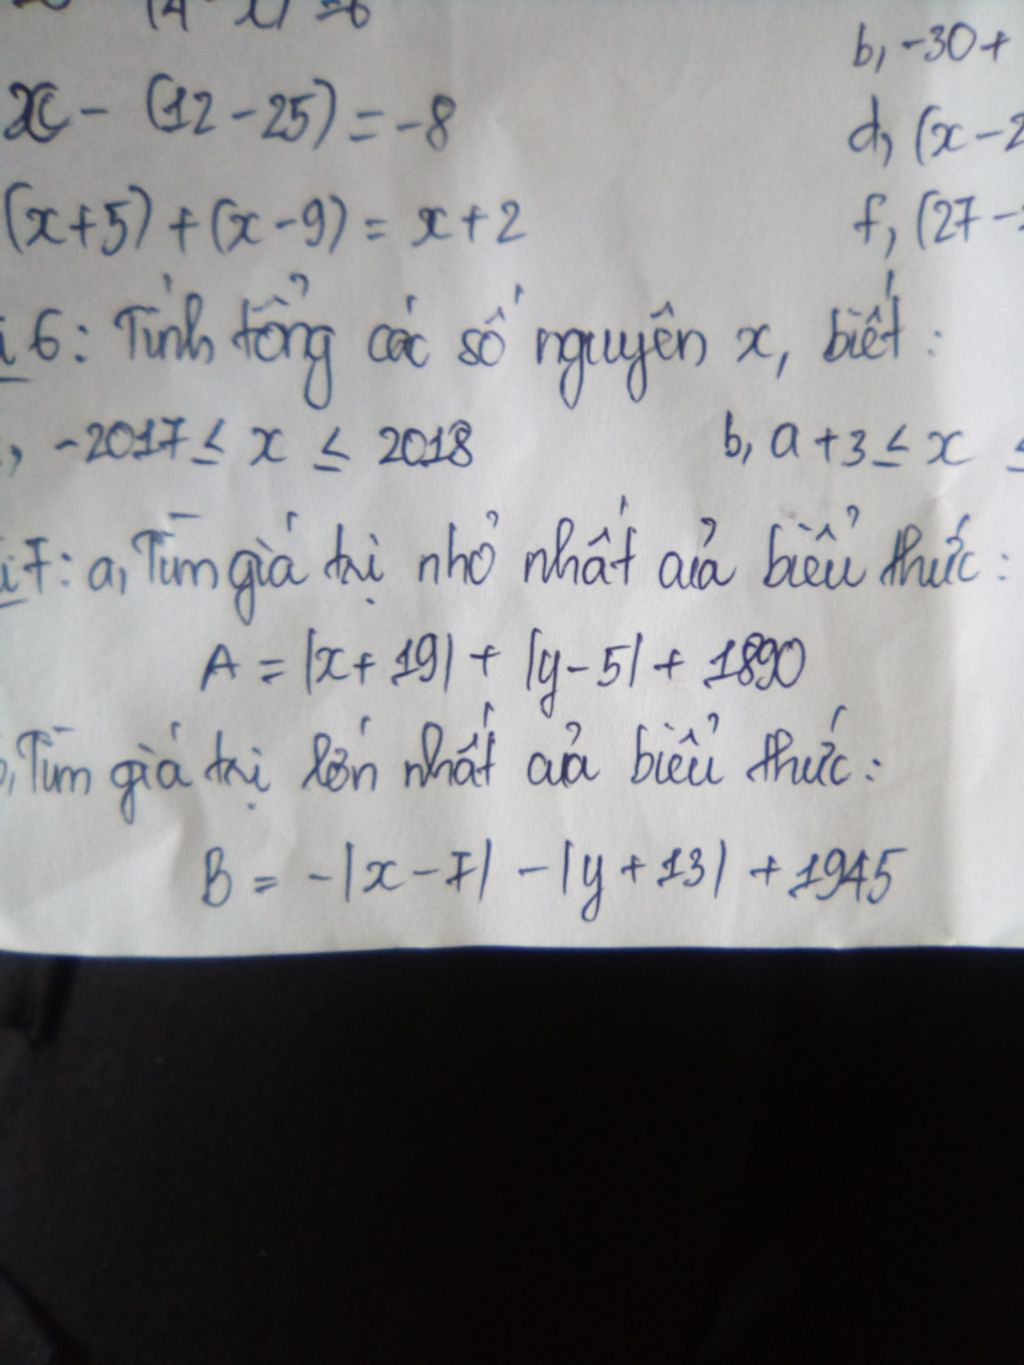 x - (12 - 25) = -8
(x+5) + (x-9) = x+2
b, -30+
d, (x-2
f, (27-
6: Tính tổng các số nguyên x, biết:
, -2017 ≤ x ≤ 2018 b, a+3 ≤ x ≤
7: a, Tìm giá trị nhỏ nhất của biểu thức:
A = |x+19| + |y-5| + 1890
, Tìm giá trị lớn nhất của biểu thức:
B = -|x-7| - |y+13| + 1945